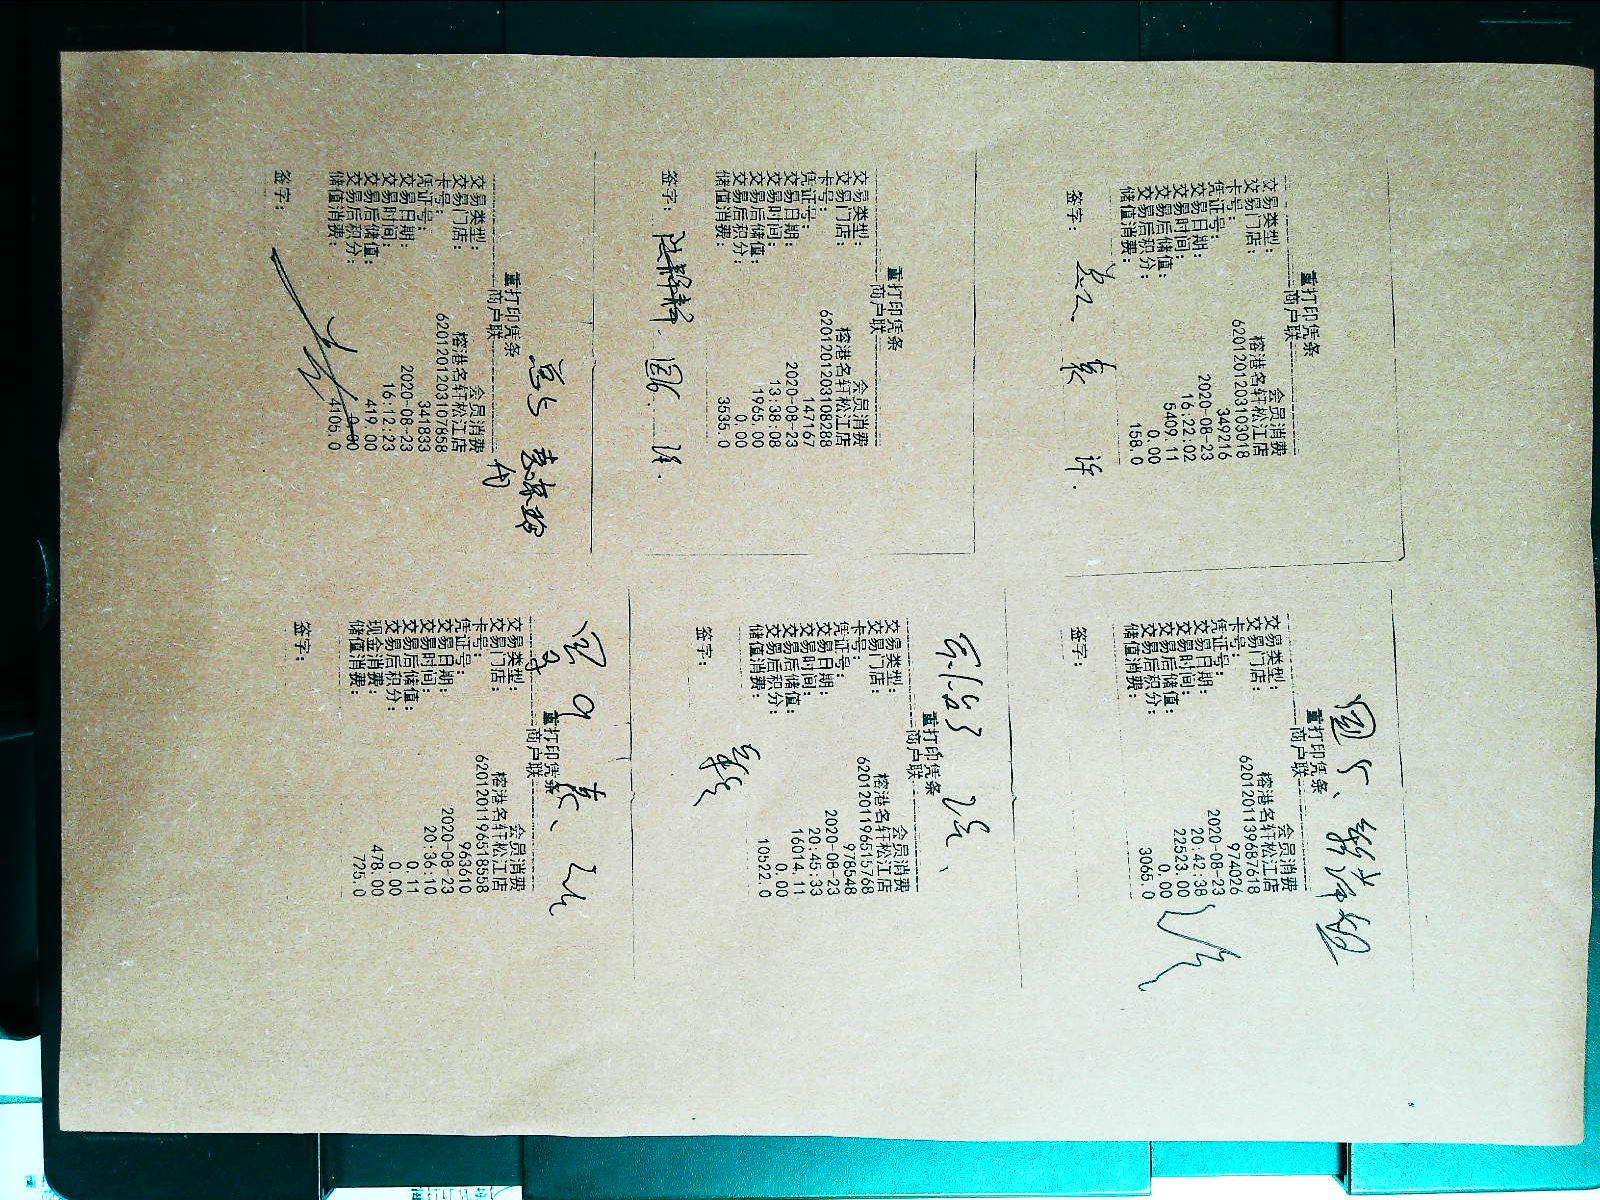 重打印凭条
商户联
交易类型： 会员消费
交易门店： 榕港名轩松江店
卡号： 6201201203103018
凭证号： 349216
交易日期： 2020-08-23
交易时间： 16:22:02
交易后储值： 5409.11
交易后积分： 0.00
储值消费： 158.0
签字：
重打印凭条
商户联
交易类型： 会员消费
交易门店： 榕港名轩松江店
卡号： 6201201139687618
凭证号： 974026
交易日期： 2020-08-23
交易时间： 20:42:38
交易后储值： 22523.00
交易后积分： 0.00
储值消费： 3065.0
签字：
重打印凭条
商户联
交易类型： 会员消费
交易门店： 榕港名轩松江店
卡号： 6201201203108288
凭证号： 147167
交易日期： 2020-08-23
交易时间： 13:38:08
交易后储值： 1965.00
交易后积分： 0.00
储值消费： 3535.0
签字：
重打印凭条
商户联
交易类型： 会员消费
交易门店： 榕港名轩松江店
卡号： 6201201196515768
凭证号： 978548
交易日期： 2020-08-23
交易时间： 20:45:33
交易后储值： 16014.11
交易后积分： 0.00
储值消费： 10522.0
签字：
重打印凭条
商户联
交易类型： 会员消费
交易门店： 榕港名轩松江店
卡号： 6201201203107858
凭证号： 341833
交易日期： 2020-08-23
交易时间： 16:12:23
交易后储值： 419.00
交易后积分： 0.00
储值消费： 4105.0
签字：
重打印凭条
商户联
交易类型： 会员消费
交易门店： 榕港名轩松江店
卡号： 6201201196518558
凭证号： 963610
交易日期： 2020-08-23
交易时间： 20:36:10
交易后储值： 0.11
交易后积分： 0.00
现金消费： 478.00
储值消费： 725.0
签字：